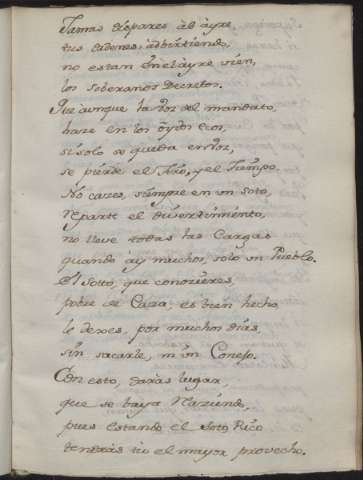 Jamas dispares àl àyre
tus ordenes, àdvirtiendo,
no estan èn el àyre vien,
los Soberanos Decretos.
Que aunque la voz del mandato,
haze en los òydos ecos,
si solo se queda en voz,
se pierde el Tiro, y el Tiempo.
No cazes, siempre en vn soto,
reparte el divertimiento,
no lleve todas las Cargas
quando ày muchos, solo vn Pueblo.
El Soto, que conozieres,
pobre de Caza, es bien hecho
le dexes, por muchos dias,
sin sacarle, ni ùn Conejo.
Con esto, daràs lugar,
que se baya Naziendo,
pues estando el Soto Rico
tendràs tu el mayor provecho.